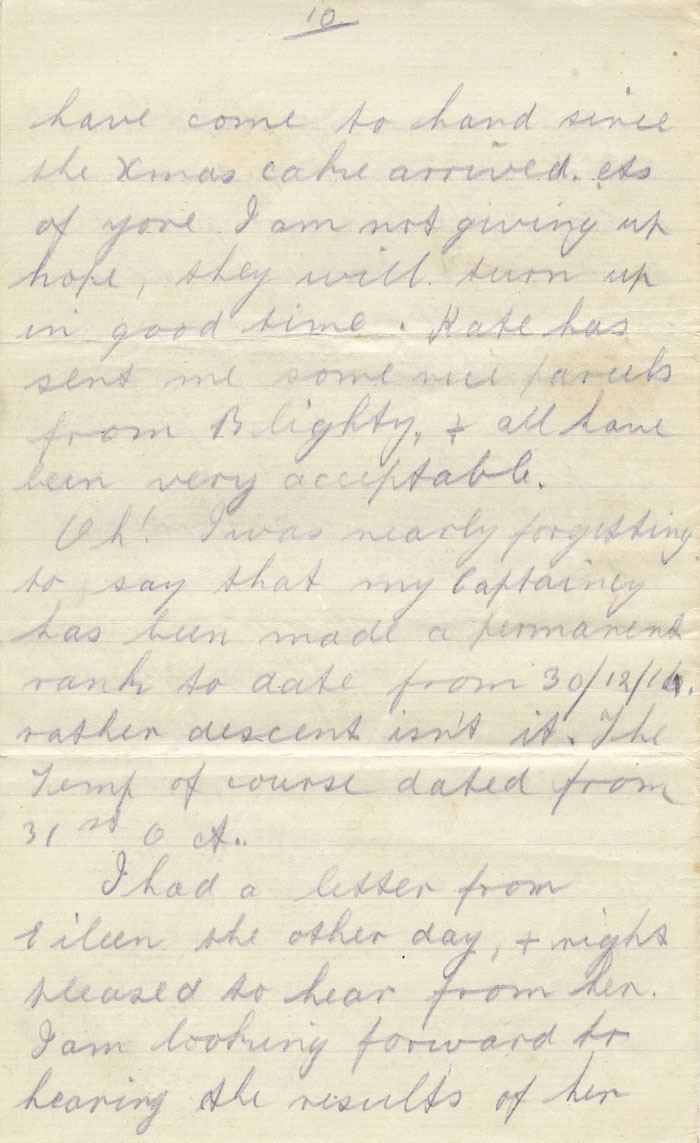 10
have come to hand since
the Xmas cake arrived. As
of yore I am not giving up
hope, they will turn up
in good time. Kate has
sent me some nice parcels
from Blighty, & all have
been very acceptable.
Oh! I was nearly forgetting
to say that my Captaincy
has been made a permanent
rank to date from 30/12/16.
rather descent isn't it. The
Temp of course dated from
31st Oct..
I had a letter from
Eileen the other day, & right
pleased to hear from her.
I am looking forward to
hearing the results of her